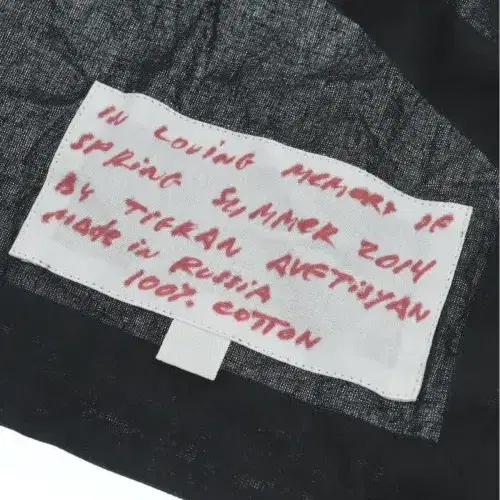 IN LOVING MEMORY OF
SPRING SUMMER 2014
BY TIGRAN AVETISYAN
MADE IN RUSSIA
100% COTTON